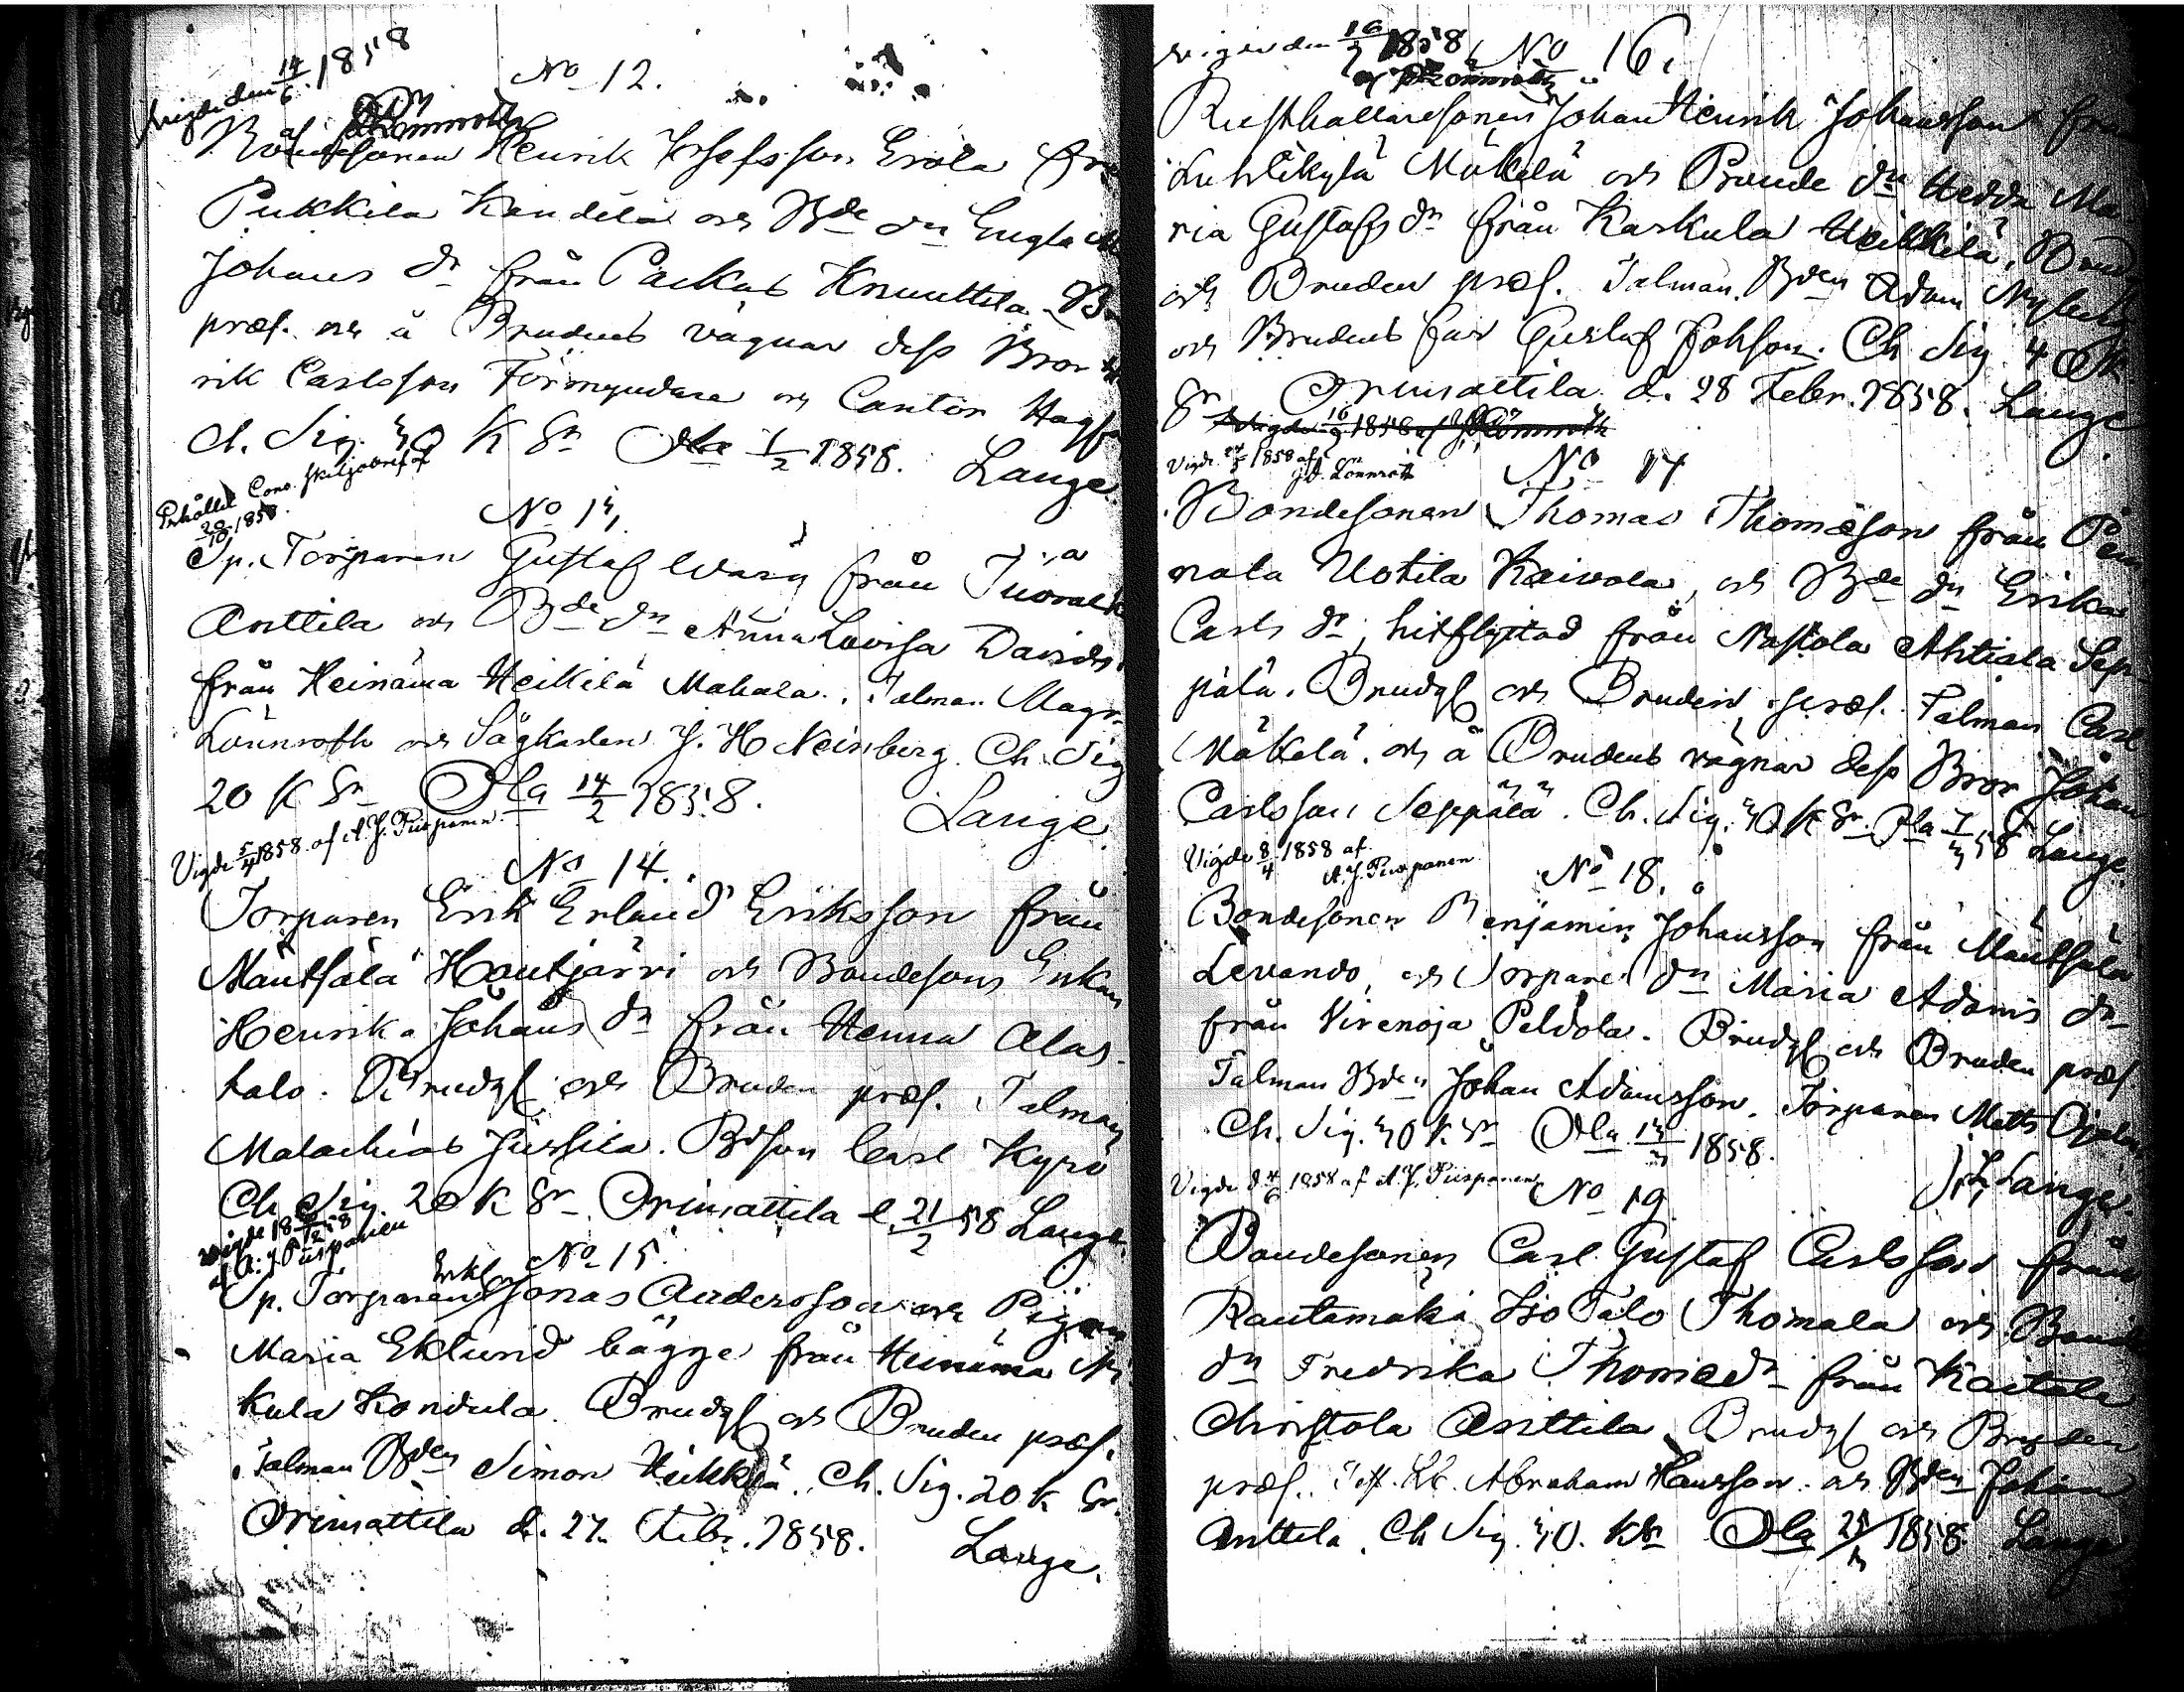 vigde den 14/6 1858
af Lönnroth
No 12.
Bondesonen Henrik Josefsson Erola från
Pukkila Kandela och Bde dn Engla
Johans dr från Packas Knuuttila
præs. och å Brudens vägnar dess Bror
rik Carlsson Förmyndare och Cantor
Ch. Sig. 30 K Sr Ola 1/2 1858. Lange.
Erhållit Cons. skiljobref af
20/10 1858.
No 13.
Sp. Torparen Gustaf Warg från
Anttila och Bde dn Anna Lovisa Davids
från Heinäma Heikilä Makala. Talman Magr
Lönnroth och Sågkarlen J. H. Neinberg. Ch. Sig
20 K Sr Ola 14/2 1858. Lange.
Vigde 5/4 1858 af A. J. Piispanen.
No 14.
Torparen Erik Erland Eriksson från
Mäntsälä Hautjärvi och Bondesons Enkan
Henrika Johans dr från Henna Alas-
talo. Brudg och Bruden præs. Talman
Malachias Jussila. Bdson Carl Kyrö
Ch Sig. 20 K Sr Orimattila d. 21/2 58 Lange.
vigde 18 58
af A. J. Piispanen
No 15.
Sp. Torparen Enkl Jonas Andersson och Pigan
Maria Eklund bägge från Heinäma
kula Kondula. Brudg och Bruden præs.
Talman Bden Simon Heikkilä. Ch. Sig. 20 K Sr.
Orimattila d. 27 Febr. 1858. Lange.
vigde den 16/ 1858
af Lönnroth
No 16.
Rusthållaresonen Johan Henrik Johansson från
Luhtikylä Mäkelä och Bonde dn Hedda Ma-
ria Gustafs dr från Karkula Heikkilä. Brudg
och Bruden præs. Talman. Bden Adam
och Brudens far Gustaf Johsson. Ch Sig 4
Sr Orimattila d. 28 Febr. 1858. Lange
Vigde 16/ 1858 af Lönnroth
Vigde 1858 af
J. A. Lönnroth
No 17
Bondesonen Thomas Thomæson från Pen
nala Uotila Kaivola, och Bde dn Erika
Carls dr, hitflyttad från Nastola Ahtiala Sep-
pälä. Brudg och Bruden præs. Talman Carl
Mäkelä. och å Brudens vägnar dess Bror Johan
Carlsson Seppälä. Ch. Sig. 30 K Sr. Ola 7/3 58 Lange.
Vigde 8/4 1858 af
A. J. Piispanen
No 18.
Bondesonen Benjamin Johansson från Mäntsälä
Levando, och Torpare dn Maria Adams dr
från Virenoja Peldola. Brudg och Bruden præs
Talman Bden Johan Adamsson. Torparen Matts
Ch. Sig. 30 K Sr Ola 13/3 1858.
Lange.
Vigde d 4/6 1858 af A. J. Piispanen
No 19
Bondesonen Carl Gustaf Carlsson från
Rautamäki Iso Talo Thomala och Bonde
dn Fredrika Thomæ dr från Kaitala
Christola Anttila. Brudg och Bruden
præs. Abraham Hansson. och Bden Johan
Anttila. Ch Sig. 30. K Sr Ola 25/3 1858 Lange